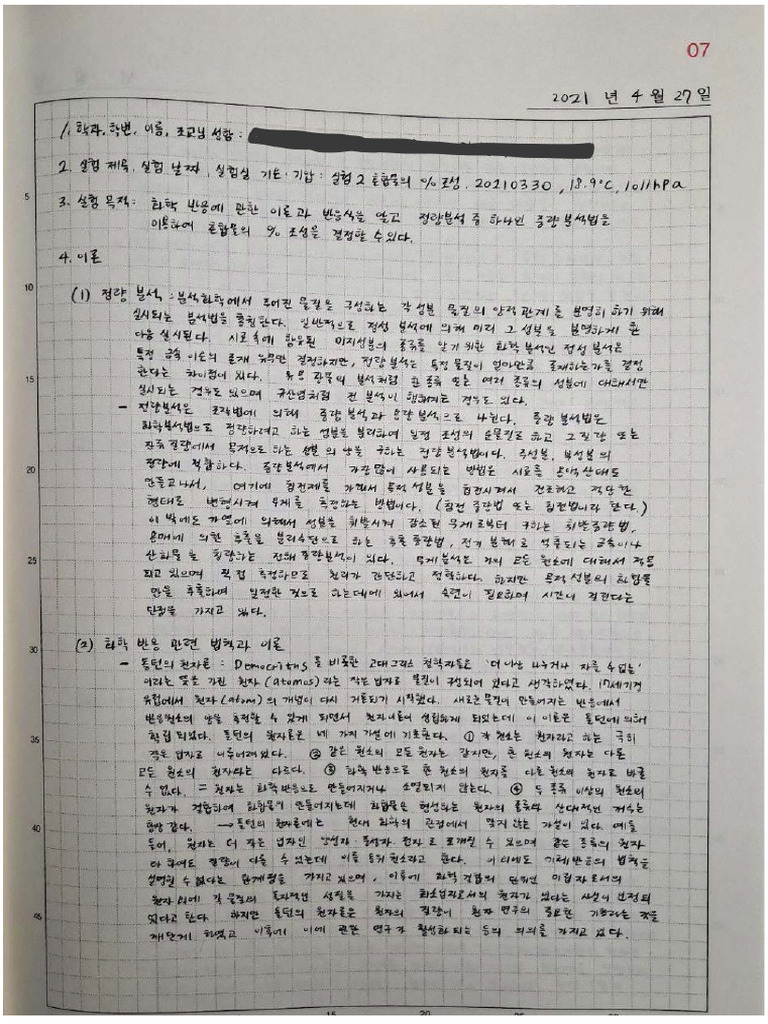 07
2021 년 4 월 27 일
1. 학과, 학번, 이름, 조교님 성함 :
2. 실험 제목, 실험 날짜, 실험실 기온·기압 : 실험 2 혼합물의 % 조성, 20210330, 18.9°C, 1011hPa
5
3. 실험 목적 : 화학 반응에 관한 이론과 반응식을 알고 정량분석 중 하나인 중량 분석법을
이용하여 혼합물의 % 조성을 결정할 수 있다.
4. 이론
10
(1) 정량 분석 : 분석화학에서 주어진 물질을 구성하는 각 성분 물질의 양적 관계를 분명히 하기 위해
실시되는 분석법을 총칭한다. 일반적으로 정성 분석에 의해 미리 그 성분을 분명하게 한
다음 실시된다. 시료 속에 함유된 미지성분의 종류를 알기 위한 화학 분석인 정성 분석은
특정 금속 이온의 존재 유무만 결정하지만, 정량분석은 특정 물질이 얼마만큼 존재하는가를 결정
15
한다는 차이점이 있다. 유용 광물의 분석처럼 한 종류 또는 여러 종류의 성분에 대해서만
실시되는 경우도 있으며 규산염처럼 전 분석이 행해지는 경우도 있다.
- 정량분석은 조작법에 의해 중량 분석과 용량 분석으로 나뉜다. 중량 분석법은
화학분석법으로 정량하려고 하는 성분을 분리하여 일정 조성의 순물질로 하고 그 질량 또는
잔류 질량에서 목적으로 하는 성분의 양을 구하는 정량 분석법이다. 주성분, 부성분의
20
정량에 적합하다. 중량분석에서 가장 많이 사용되는 방법은 시료를 용액 상태로
만들고 나서, 여기에 침전제를 가해서 목적 성분을 침전시켜서 건조하고 적당한
형태로 변형시켜 무게를 측정하는 방법이다. (침전 중량법 또는 침전법이라 한다.)
이 밖에도 가열에 의해서 성분을 휘발시켜 감소된 무게로부터 구하는 휘발중량법,
용매에 의한 추출을 분리수단으로 하는 추출 중량법, 전기 분해로 석출되는 금속이나
25
산화물을 칭량하는 전해 중량분석이 있다. 무게분석은 거의 모든 원소에 대해서 적용
되고 있으며 직접 측정하므로 원리가 간단하고 정확하다. 하지만 목적 성분의 화합물
만을 추출하여 일정한 것으로 하는데에 있어서 숙련이 필요하며 시간이 걸린다는
단점을 가지고 있다.
30
(2) 화학 반응 관련 법칙과 이론
- 돌턴의 원자론 : Democritus를 비롯한 고대 그리스 철학자들은 '더 이상 나누거나 자를 수 없는'
이라는 뜻을 가진 원자(atomos)라는 작은 입자로 물질이 구성되어 있다고 생각하였다. 17세기경
유럽에서 원자(atom)의 개념이 다시 거론되기 시작했다. 새로운 물질이 만들어지는 반응에서
반응원소의 양을 측정할 수 있게 되면서 원자이론이 성립하게 되었는데 이 이론은 돌턴에 의해
35
확립되었다. 돌턴의 원자론은 네 가지 가설에 기초한다. ① 각 원소는 원자라고 하는 극히
작은 입자로 이루어져 있다. ② 같은 원소의 모든 원자는 같지만, 한 원소의 원자는 다른
모든 원소의 원자와는 다르다. ③ 화학 반응으로 한 원소의 원자를 다른 원소의 원자로 바꿀
수 없다. = 원자는 화학반응으로 만들어지거나 소멸되지 않는다. ④ 두 종류 이상의 원소의
원자가 결합하여 화합물이 만들어지는데 화합물을 형성하는 원자의 종류와 상대적인 개수는
40
항상 같다. → 돌턴의 원자론에는 현대 화학의 관점에서 맞지 않는 가설이 있다. 예를
들어, 원자는 더 작은 입자인 양성자·중성자·전자로 쪼개질 수 있으며 같은 종류의 원자
다 하여도 질량이 다를 수 있는데 이를 동위 원소라고 한다. 이 외에도 기체반응의 법칙을
설명할 수 없다는 한계점을 가지고 있으며, 이후에 화학 결합의 단위인 미립자로서의
원자 외에 각 물질의 독자적인 성질을 가지는 최소입자로서의 분자가 있다는 사실이 인정되
45
었다고 한다. 하지만 돌턴의 원자론은 원자의 질량이 원자 연구의 중요한 기준이라는 것을
깨닫게 하였고 이후에 이에 관한 연구가 활성화 되는 등의 의의를 가지고 있다.
15
20